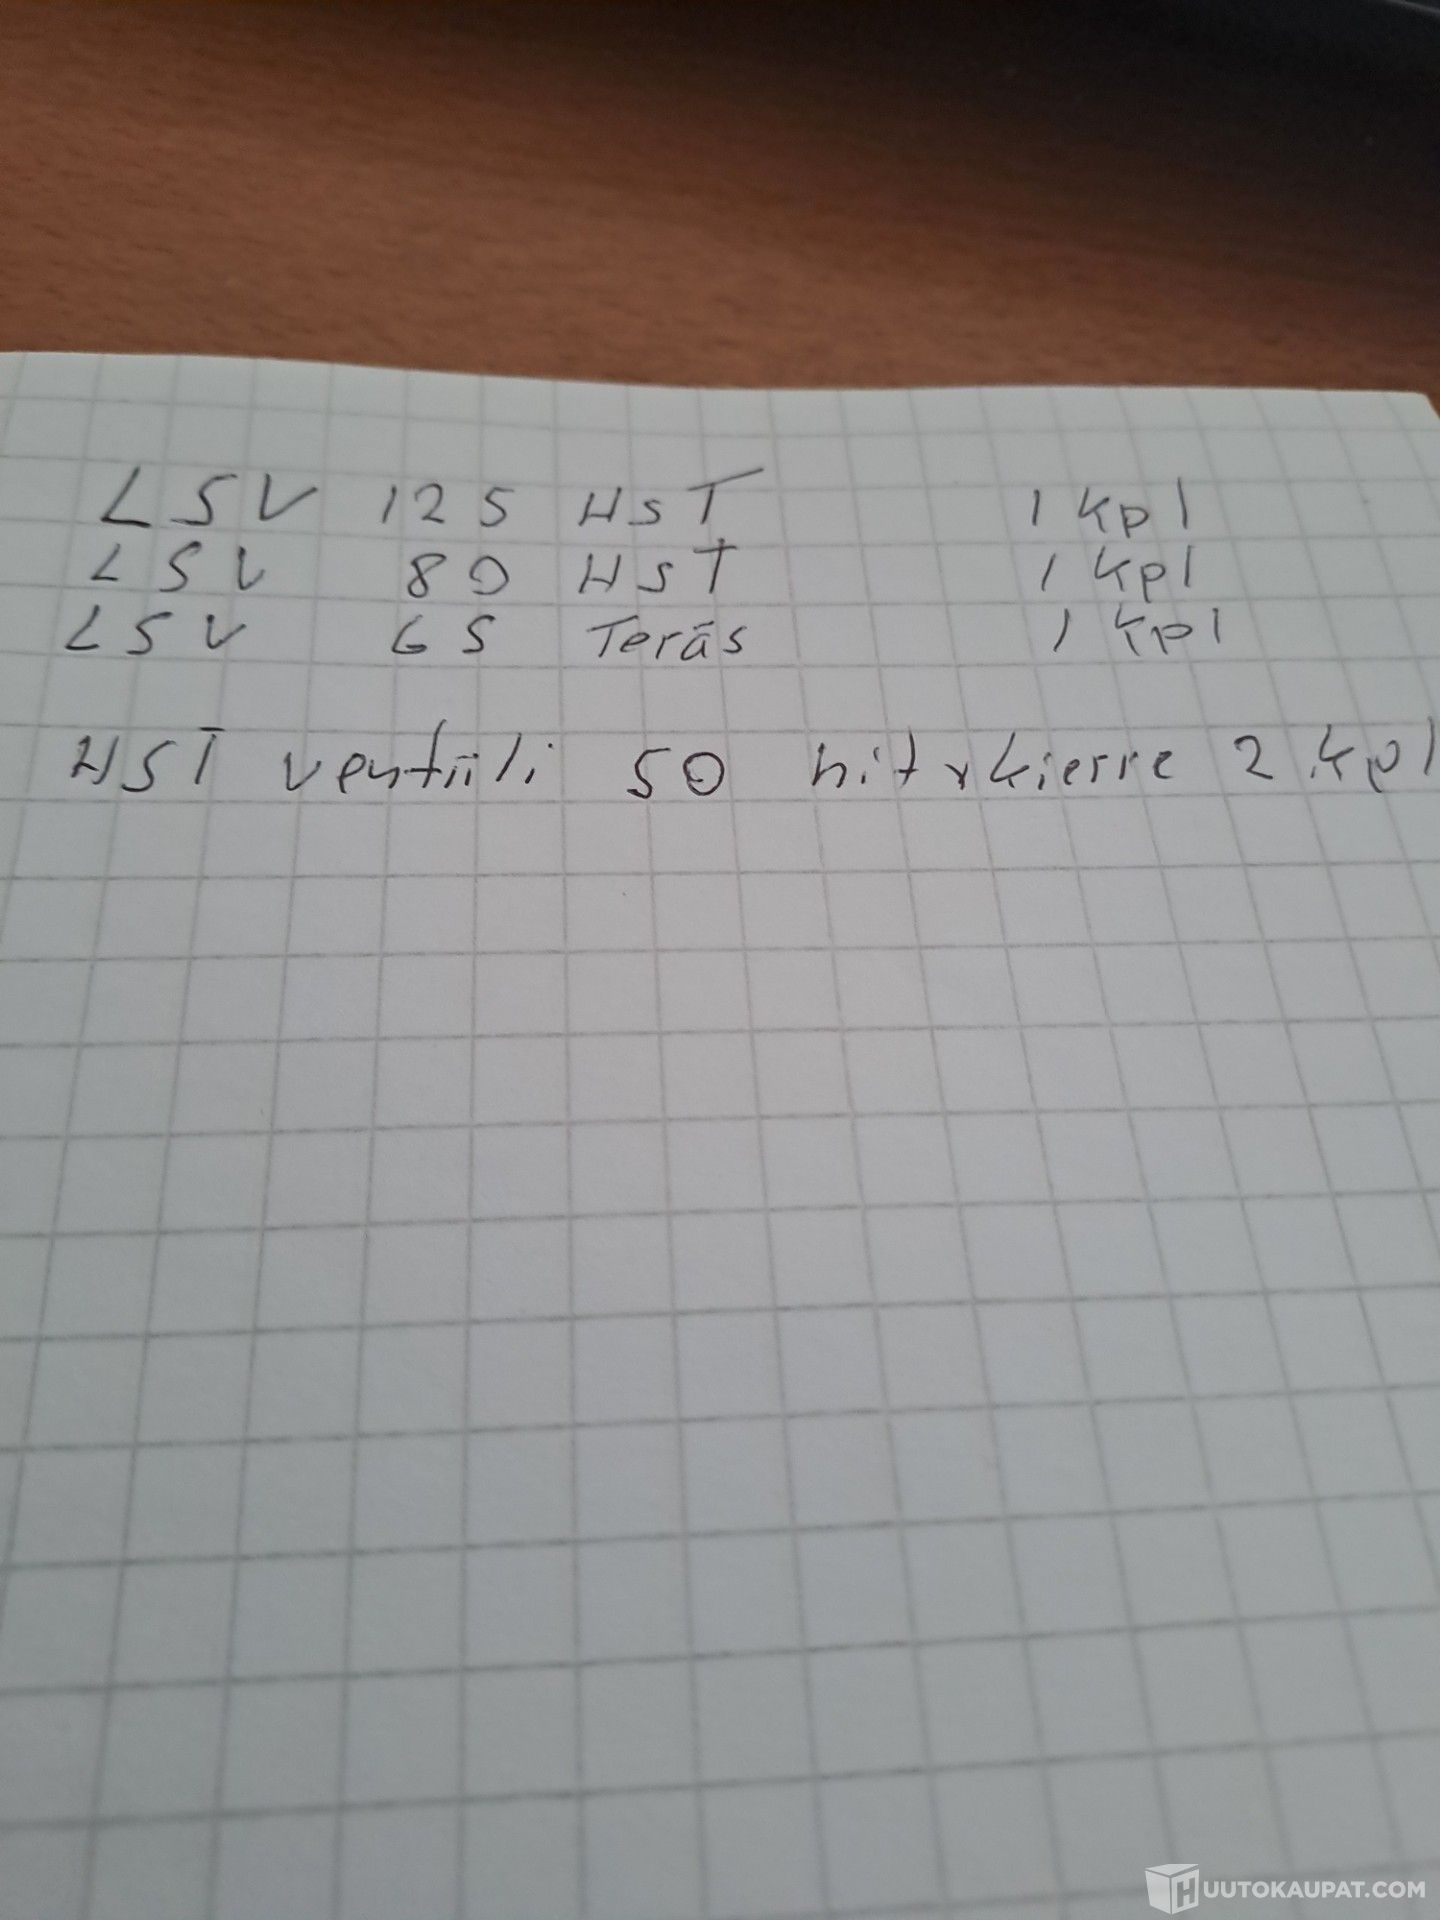 LSV 125 HST 1 kpl
LSV 80 HST 1 kpl
LSV 65 Teräs 1 kpl
HST ventiili 50 hit x kierre 2 kpl
HUUTOKAUPAT.COM